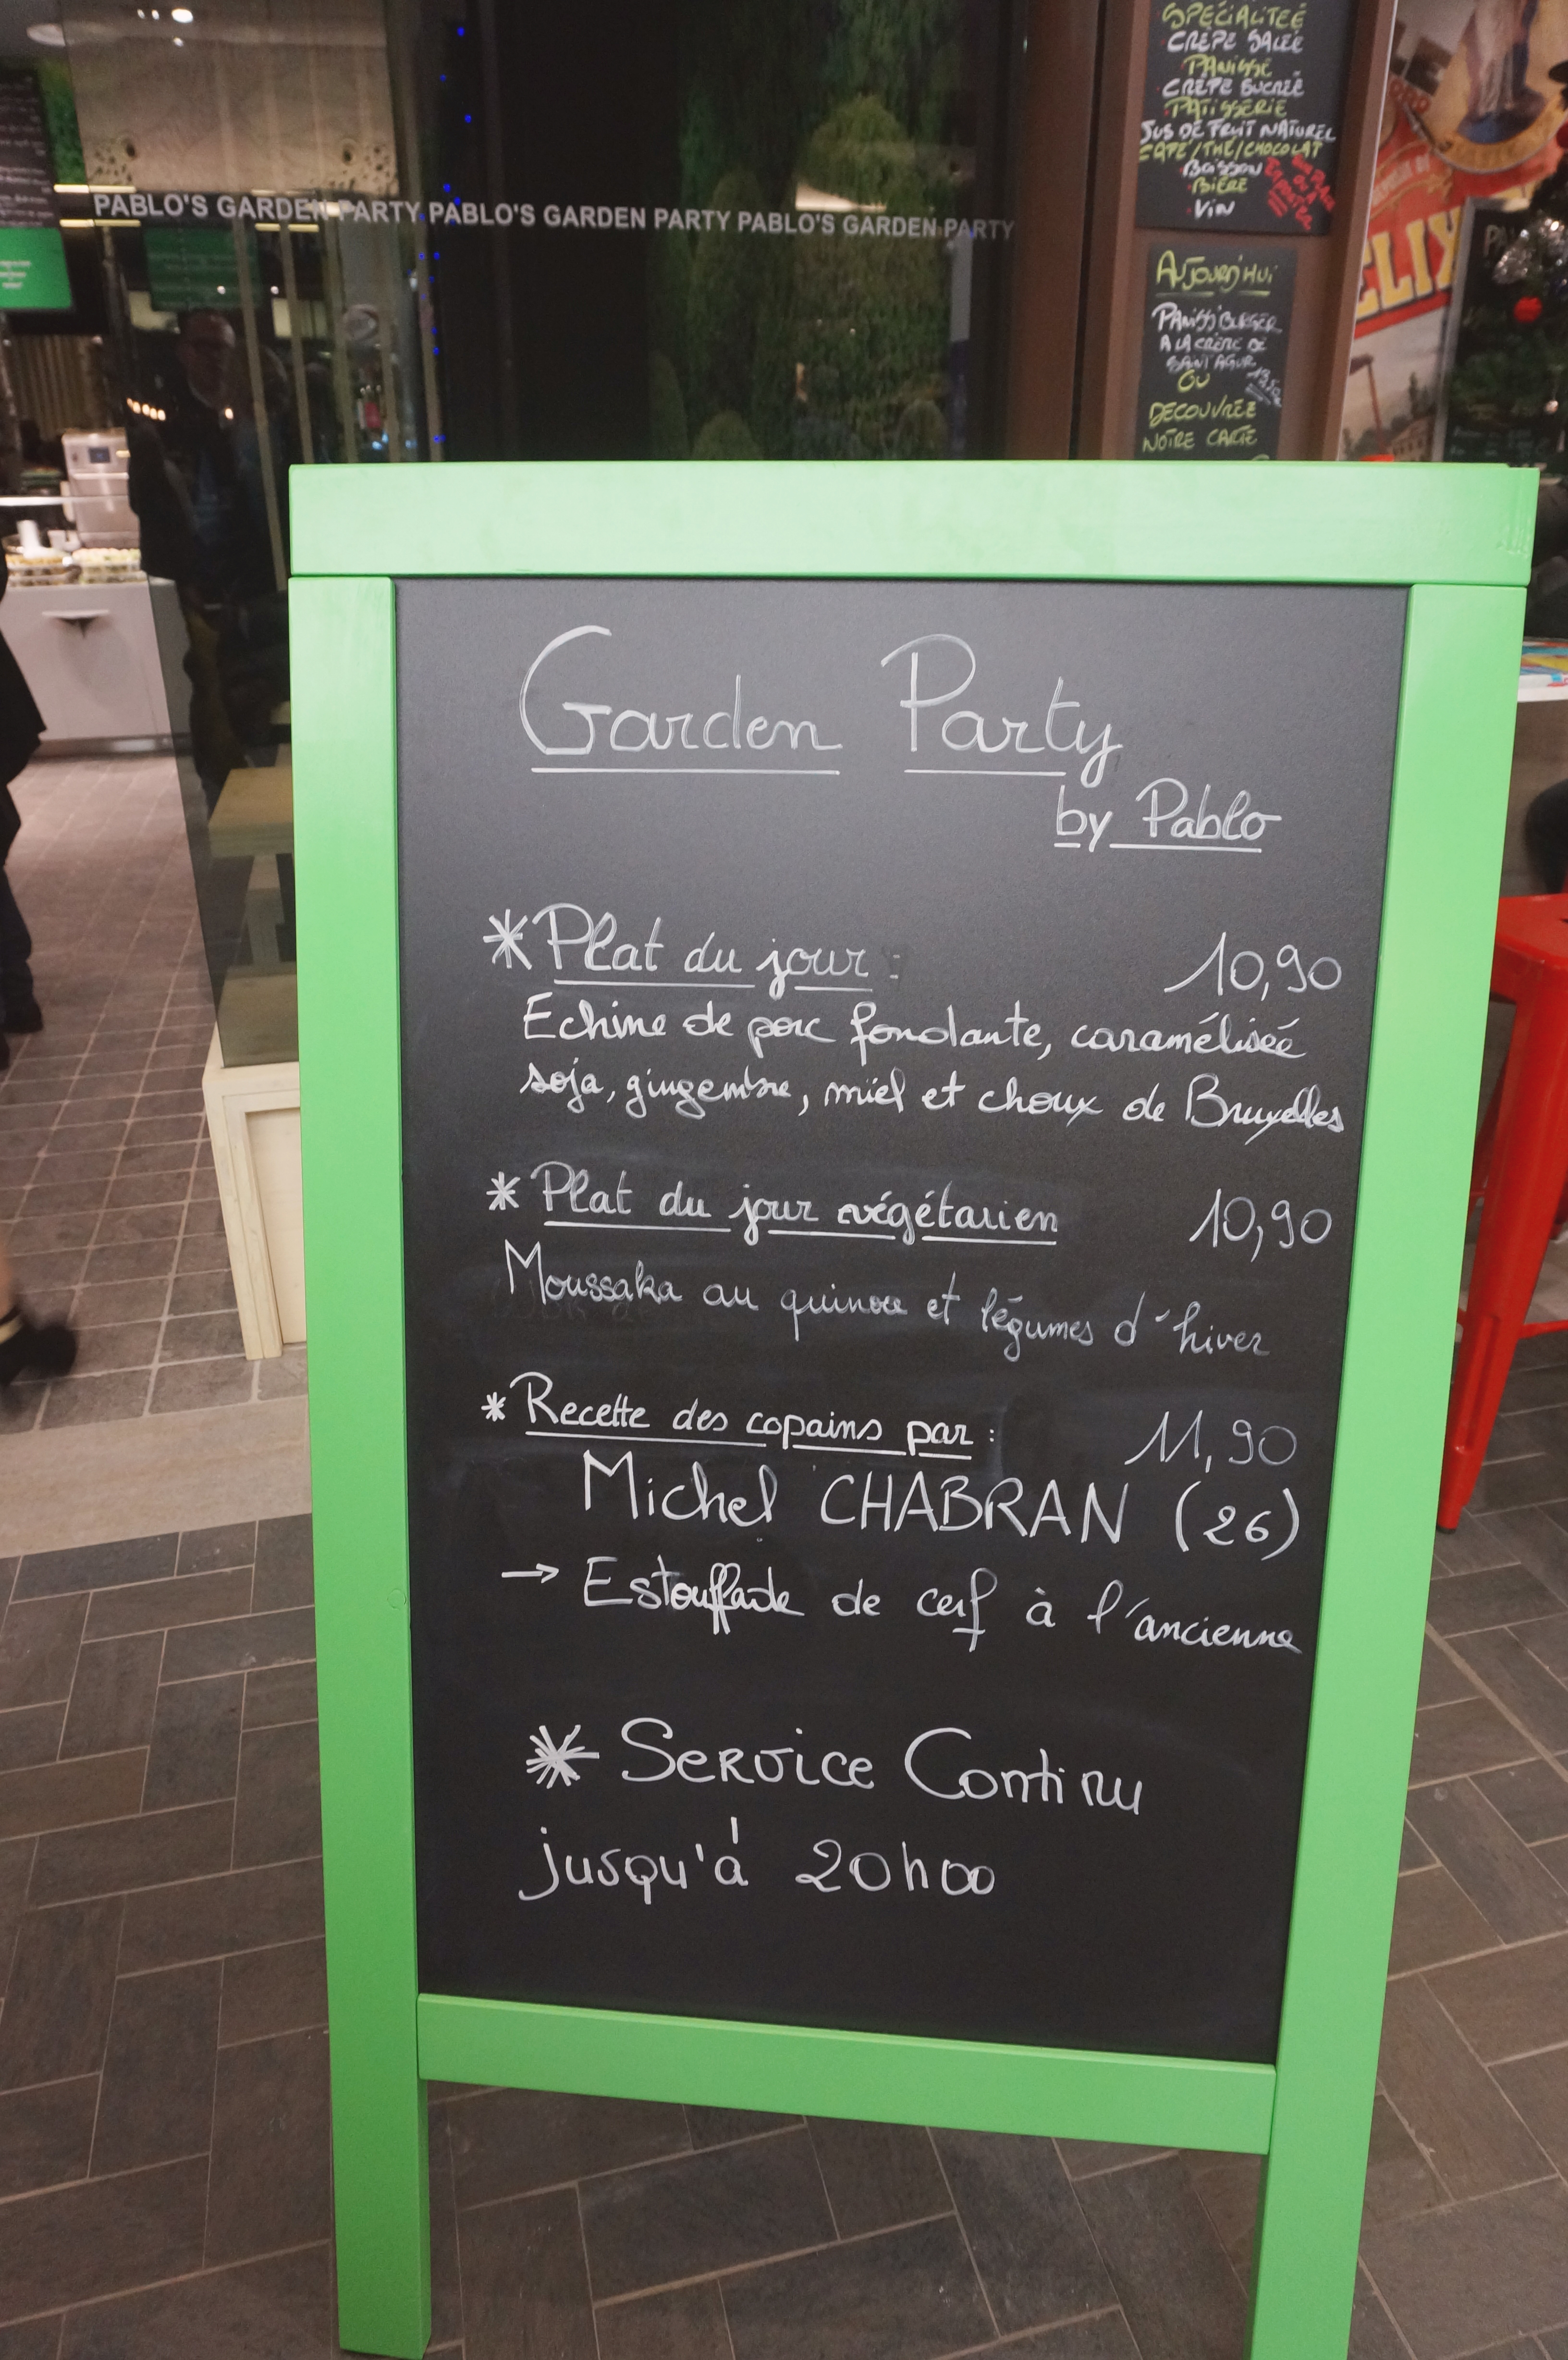 SPÉCIALITEÉ
CRÊPE SALÉE
PANISSE
CRÊPE SUCRÉE
PATISSERIE
JUS DE FRUIT NATUREL
CAFE/THÉ/CHOCOLAT
BOISSON
BIÈRE
VIN
PABLO'S GARDEN PARTY PABLO'S GARDEN PARTY PABLO'S GARDEN PARTY
AUJOURD'HUI
PANISS'BURGER
A LA CRÈME DE
SAINT AGUR
OU
DECOUVRÉE
NOTRE CARTE
ELIX
Garden Party
by Pablo
*Plat du jour : 10,90
Echine de porc fondante, caraméliseé
soja, gingembre, miel et choux de Bruxelles
* Plat du jour végétarien 10,90
Moussaka au quinoa et légumes d'hiver
* Recette des copains par : 11,90
Michel CHABRAN (26)
→ Estouffade de cerf à l'ancienne
* Service Continu
jusqu'à 20h00